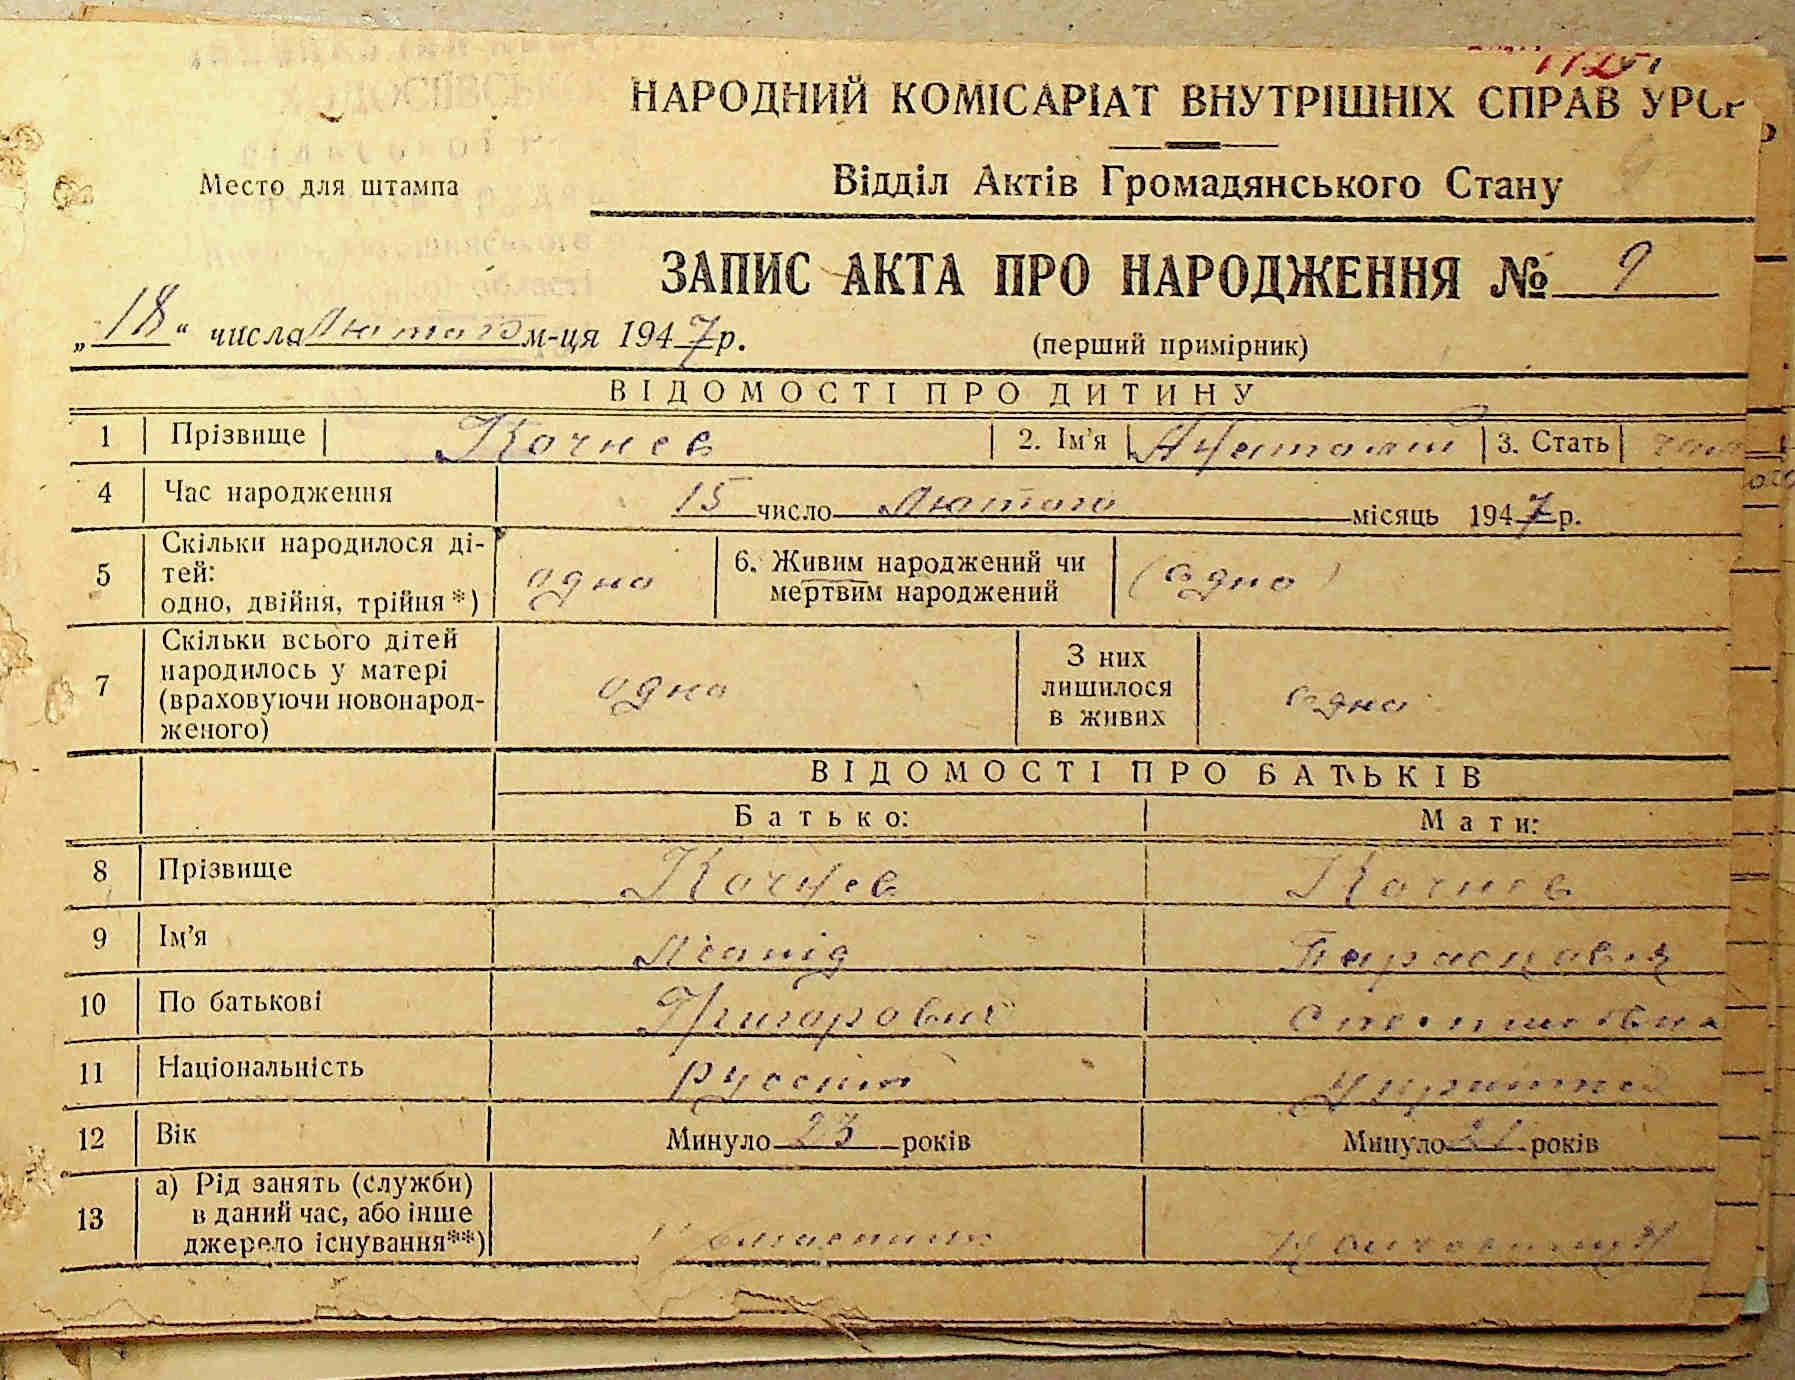 НАРОДНИЙ КОМІСАРІАТ ВНУТРІШНІХ СПРАВ УРСР
Место для штампа
Відділ Актів Громадянського Стану
ЗАПИС АКТА ПРО НАРОДЖЕННЯ № 9
„18“ числа Лютого м-ця 1947 р.
(перший примірник)
ВІДОМОСТІ ПРО ДИТИНУ
1 Прізвище Кочнев 2. Ім'я Анатолій 3. Стать чол
4 Час народження 15 число Лютого місяць 1947 р.
5 Скільки народилося ді-
тей:
одно, двійня, трійня*) одно
6. Живим народжений чи
мертвим народжений (одно)
7 Скільки всього дітей
народилось у матері
(враховуючи новонарод-
женого) одно
З них
лишилося
в живих одно
ВІДОМОСТІ ПРО БАТЬКІВ
Батько: Мати:
8 Прізвище Кочнев Кочнев
9 Ім'я Леонід Парасковія
10 По батькові Григорович
11 Національність русский
12 Вік Минуло 23 років Минуло 21 років
13 а) Рід занять (служби)
в даний час, або інше
джерело існування**)